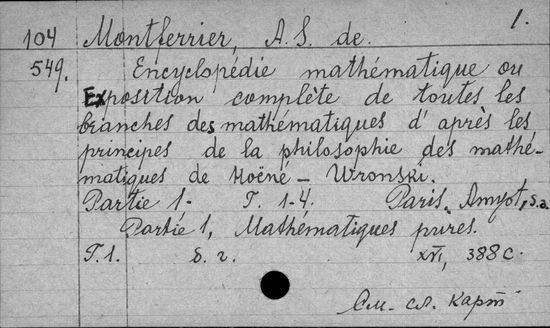 1.
104 Montferrier, A. S. de.
549. Encyclopédie mathématique ou
Exposition complète de toutes les
branches des mathématiques d'après les
principes de la philosophie des mathé-
matiques de Hoëné – Wronski.
Partie 1- T. 1-4. Paris, Amyot, s.a.
Partie 1, Mathématiques pures.
T. 1. S. г. XVI, 388 с.
См. сл. карт